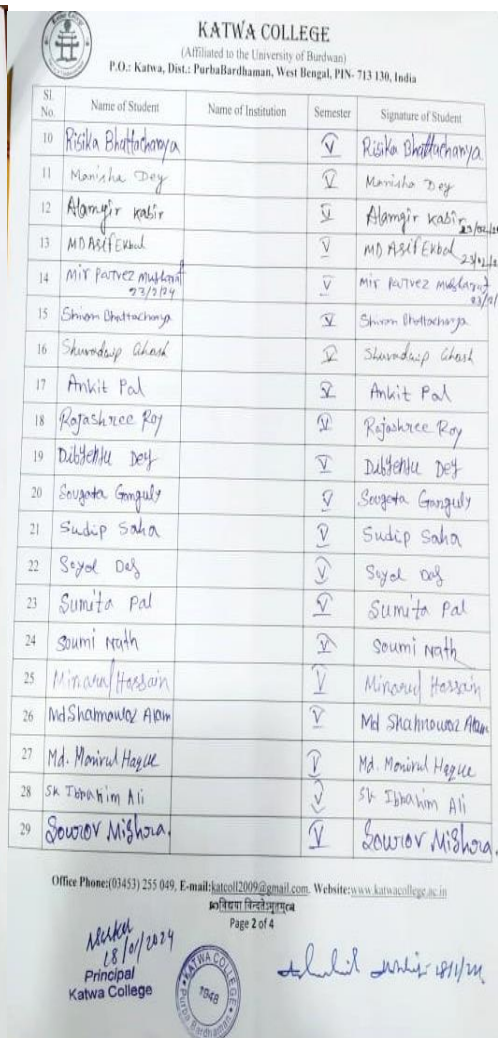 KATWA COLLEGE
(Affiliated to the University of Burdwan)
P.O.: Katwa, Dist.: PurbaBardhaman, West Bengal, PIN- 713 130, India
Sl. No. Name of Student Name of Institution Semester Signature of Student
10 Risika Bhattacharya V Risika Bhattacharya
11 Manisha Dey V Manisha Dey
12 Alamgir Kabir V Alamgir Kabir
13 MD Asif Ekbal V MD Asif Ekbal
14 Mir Parvez V Mir Parvez
23/2/24
15 Bhattacharya V Bhattacharya
16 Ghosh V Ghosh
17 Ankit Pal V Ankit Pal
18 Rajashree Roy V Rajashree Roy
19 Dibyendu Dey V Dibyendu Dey
20 Sougata Ganguly V Sougata Ganguly
21 Sudip Saha V Sudip Saha
22 Soyel Das V Soyel Das
23 Sumita Pal V Sumita Pal
24 Soumi Nath V Soumi Nath
25 Minarul Hossain V Minarul Hossain
26 Md Shahnawaz Alam V Md Shahnawaz Alam
27 Md. Monirul Haque V Md. Monirul Haque
28 Sk Ibrahim Ali V Sk Ibrahim Ali
29 Sourov Mishora. V Sourov Mishora.
Office Phone:(03453) 255 049, E-mail:katcoll2009@gmail.com, Website:www.katwacollege.ac.in
विद्यया विन्दतेऽमृतम्
Page 2 of 4
18/01/2024
Principal
Katwa College
KATWA COLLEGE
1948
Purba Bardhaman